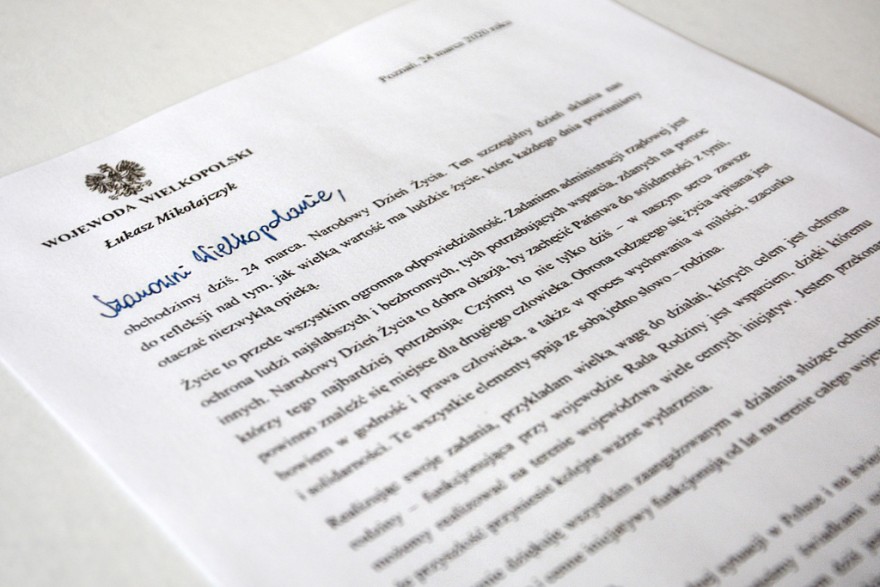 Poznań, 24 marca 2020 roku
WOJEWODA WIELKOPOLSKI
Łukasz Mikołajczyk
Szanowni Wielkopolanie,
obchodzimy dziś, 24 marca, Narodowy Dzień Życia. Ten szczególny dzień skłania nas
do refleksji nad tym, jak wielka wartość ma ludzkie życie, które każdego dnia powinniśmy
otaczać niezwykłą opieką.
Życie to przede wszystkim ogromna odpowiedzialność. Zadaniem administracji rządowej jest
ochrona ludzi najsłabszych i bezbronnych, tych potrzebujących wsparcia, zdanych na pomoc
innych. Narodowy Dzień Życia to dobra okazja, by zachęcić Państwa do solidarności z tymi,
którzy tego najbardziej potrzebują. Czyńmy to nie tylko dziś – w naszym sercu zawsze
powinno znaleźć się miejsce dla drugiego człowieka. Obrona rodzącego się życia wpisana jest
bowiem w godność i prawa człowieka, a także w proces wychowania w miłości, szacunku
i solidarności. Te wszystkie elementy spaja ze sobą jedno słowo - rodzina.
Realizując swoje zadania, przykładam wielką wagę do działań, których celem jest ochrona
rodziny – funkcjonująca przy wojewodzie Rada Rodziny jest wsparciem, dzięki któremu
możemy realizować na terenie województwa wiele cennych inicjatyw. Jestem przekonany
że przyszłość przyniesie kolejne ważne wydarzenia.
dziękuję wszystkim zaangażowanym w działania służące ochronie
i cenne inicjatywy funkcjonują od lat na terenie całego wojew
sytuacji w Polsce i na świecie
świadkami